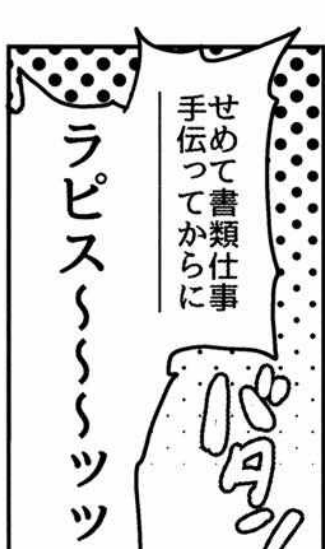 せめて書類仕事
手伝ってからに
――――
ラピス～～～ッッ
バタン